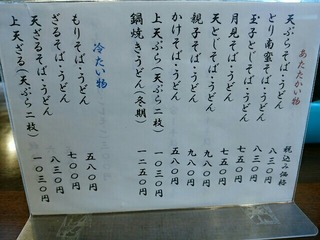 あたたかい物
税込み価格
天ぷらそば・うどん 八三〇円
とり南蛮そば・うどん 八三〇円
玉子とじそば・うどん 七五〇円
月見そば・うどん 七五〇円
天とじそば・うどん 九八〇円
親子そば・うどん 九八〇円
かけそば・うどん 五八〇円
上天ぷら(天ぷら二枚) 一〇三〇円
鍋焼きうどん(冬期) 一二五〇円
冷たい物
もりそば・うどん 五八〇円
ざるそば・うどん 七〇〇円
天ざるそば・うどん 八三〇円
上天ざる(天ぷら二枚) 一〇三〇円